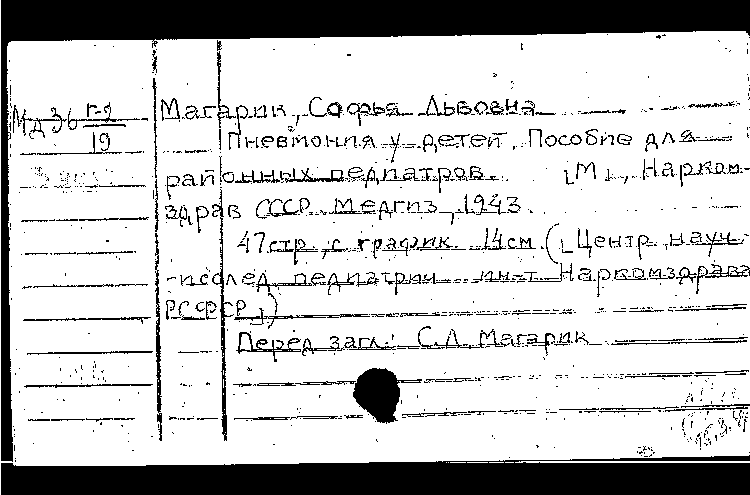 Мд 36 г-9
19
Магарик, Софья Львовна
Пневмония у детей. Пособие для
районных педиатров. [М], Нарком-
здрав СССР. Медгиз, 1943.
47 стр., с график. 14 см. ([Центр. науч.-
-исслед. педиатрии ин-т Наркомздрава
РСФСР])
Перед загл.: С.Л. Магарик